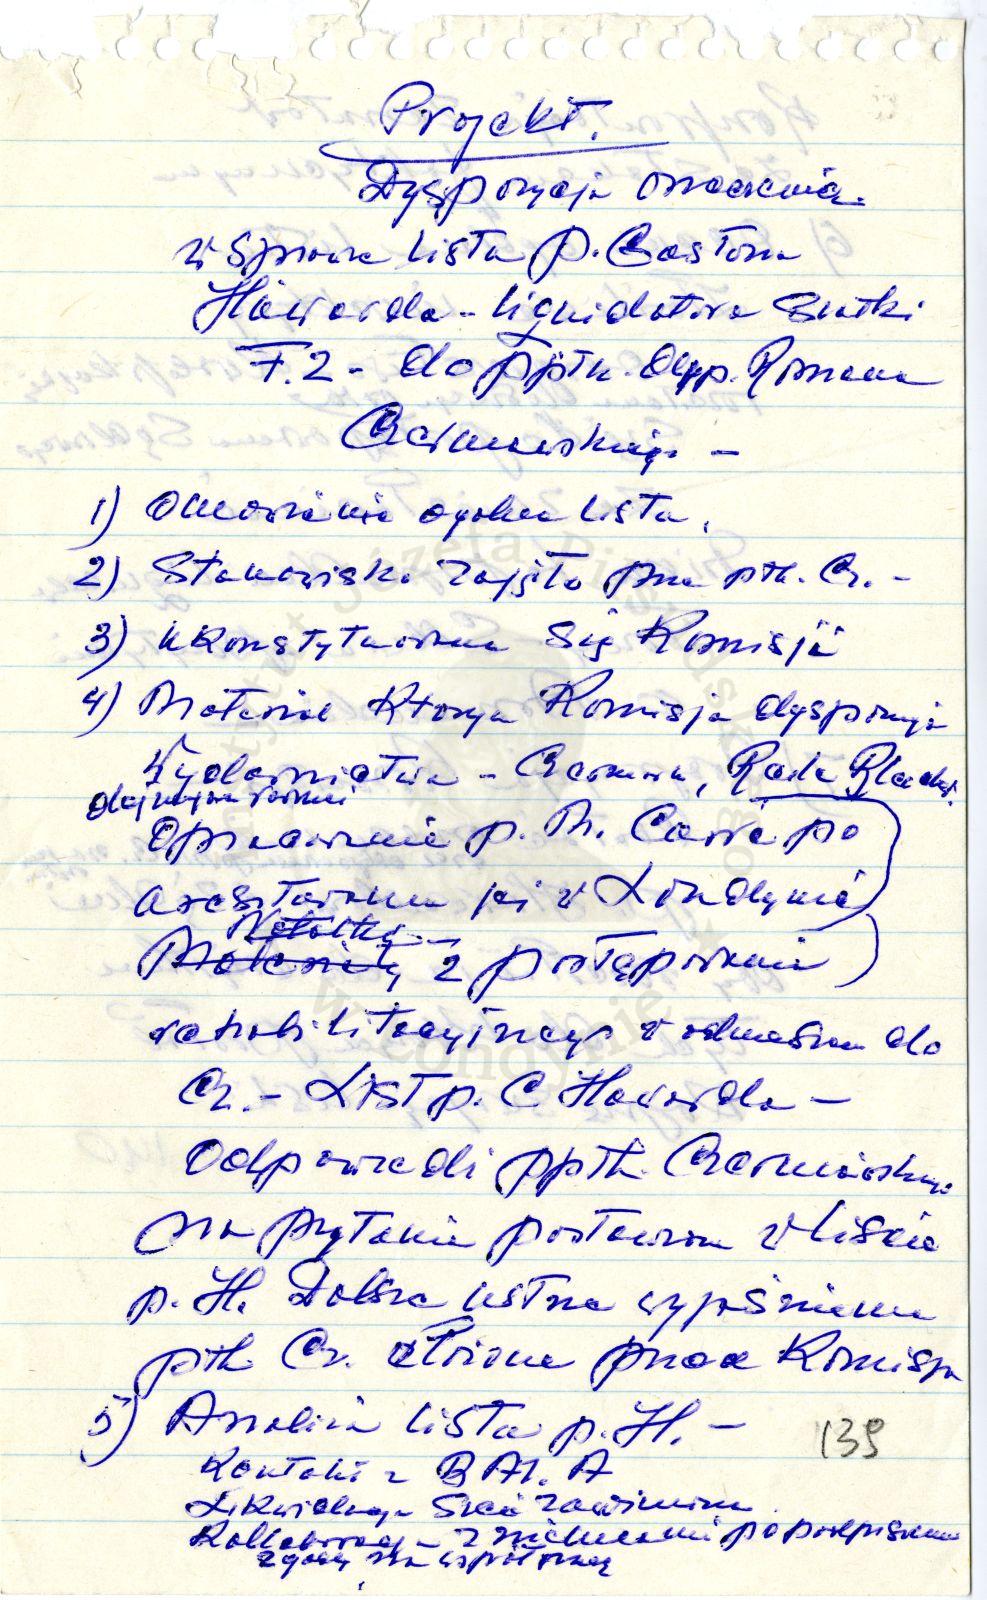 Projekt.
Dyspozycja orzeczenia
w sprawie listu p. Gastona
Hawarda - liquidatora siatki
F.2 - do ppłk. dypp. Romana
Czerniawskiego -
1) Omówienie ogólne listu.
2) Stanowisko zajęte przez płk. Cz. -
3) Ukonstytuowanie się Komisji
4) Materiał którym Komisja dysponuje
Wydawnictwa - Czerniaw., Rada Black.
Opracowanie p. M. Carré po
aresztowaniu jej w Londynie
Notatky
Materiały z postępowania
rehabilitacyjnego w odniesieniu do
Cz. - List p. C Hawarda -
Odpowiedzi ppłk. Czerniawskiego
na pytania postawione w liście
p. H. Dalsze ustne wyjaśnienia
płk Cz. złożone przed Komisją
5) Analiza listu p. H. -
139
Kontakt z B Al. A
Likwidacja Sieci
z Niemcami po podpisaniu
zgody na współpracę